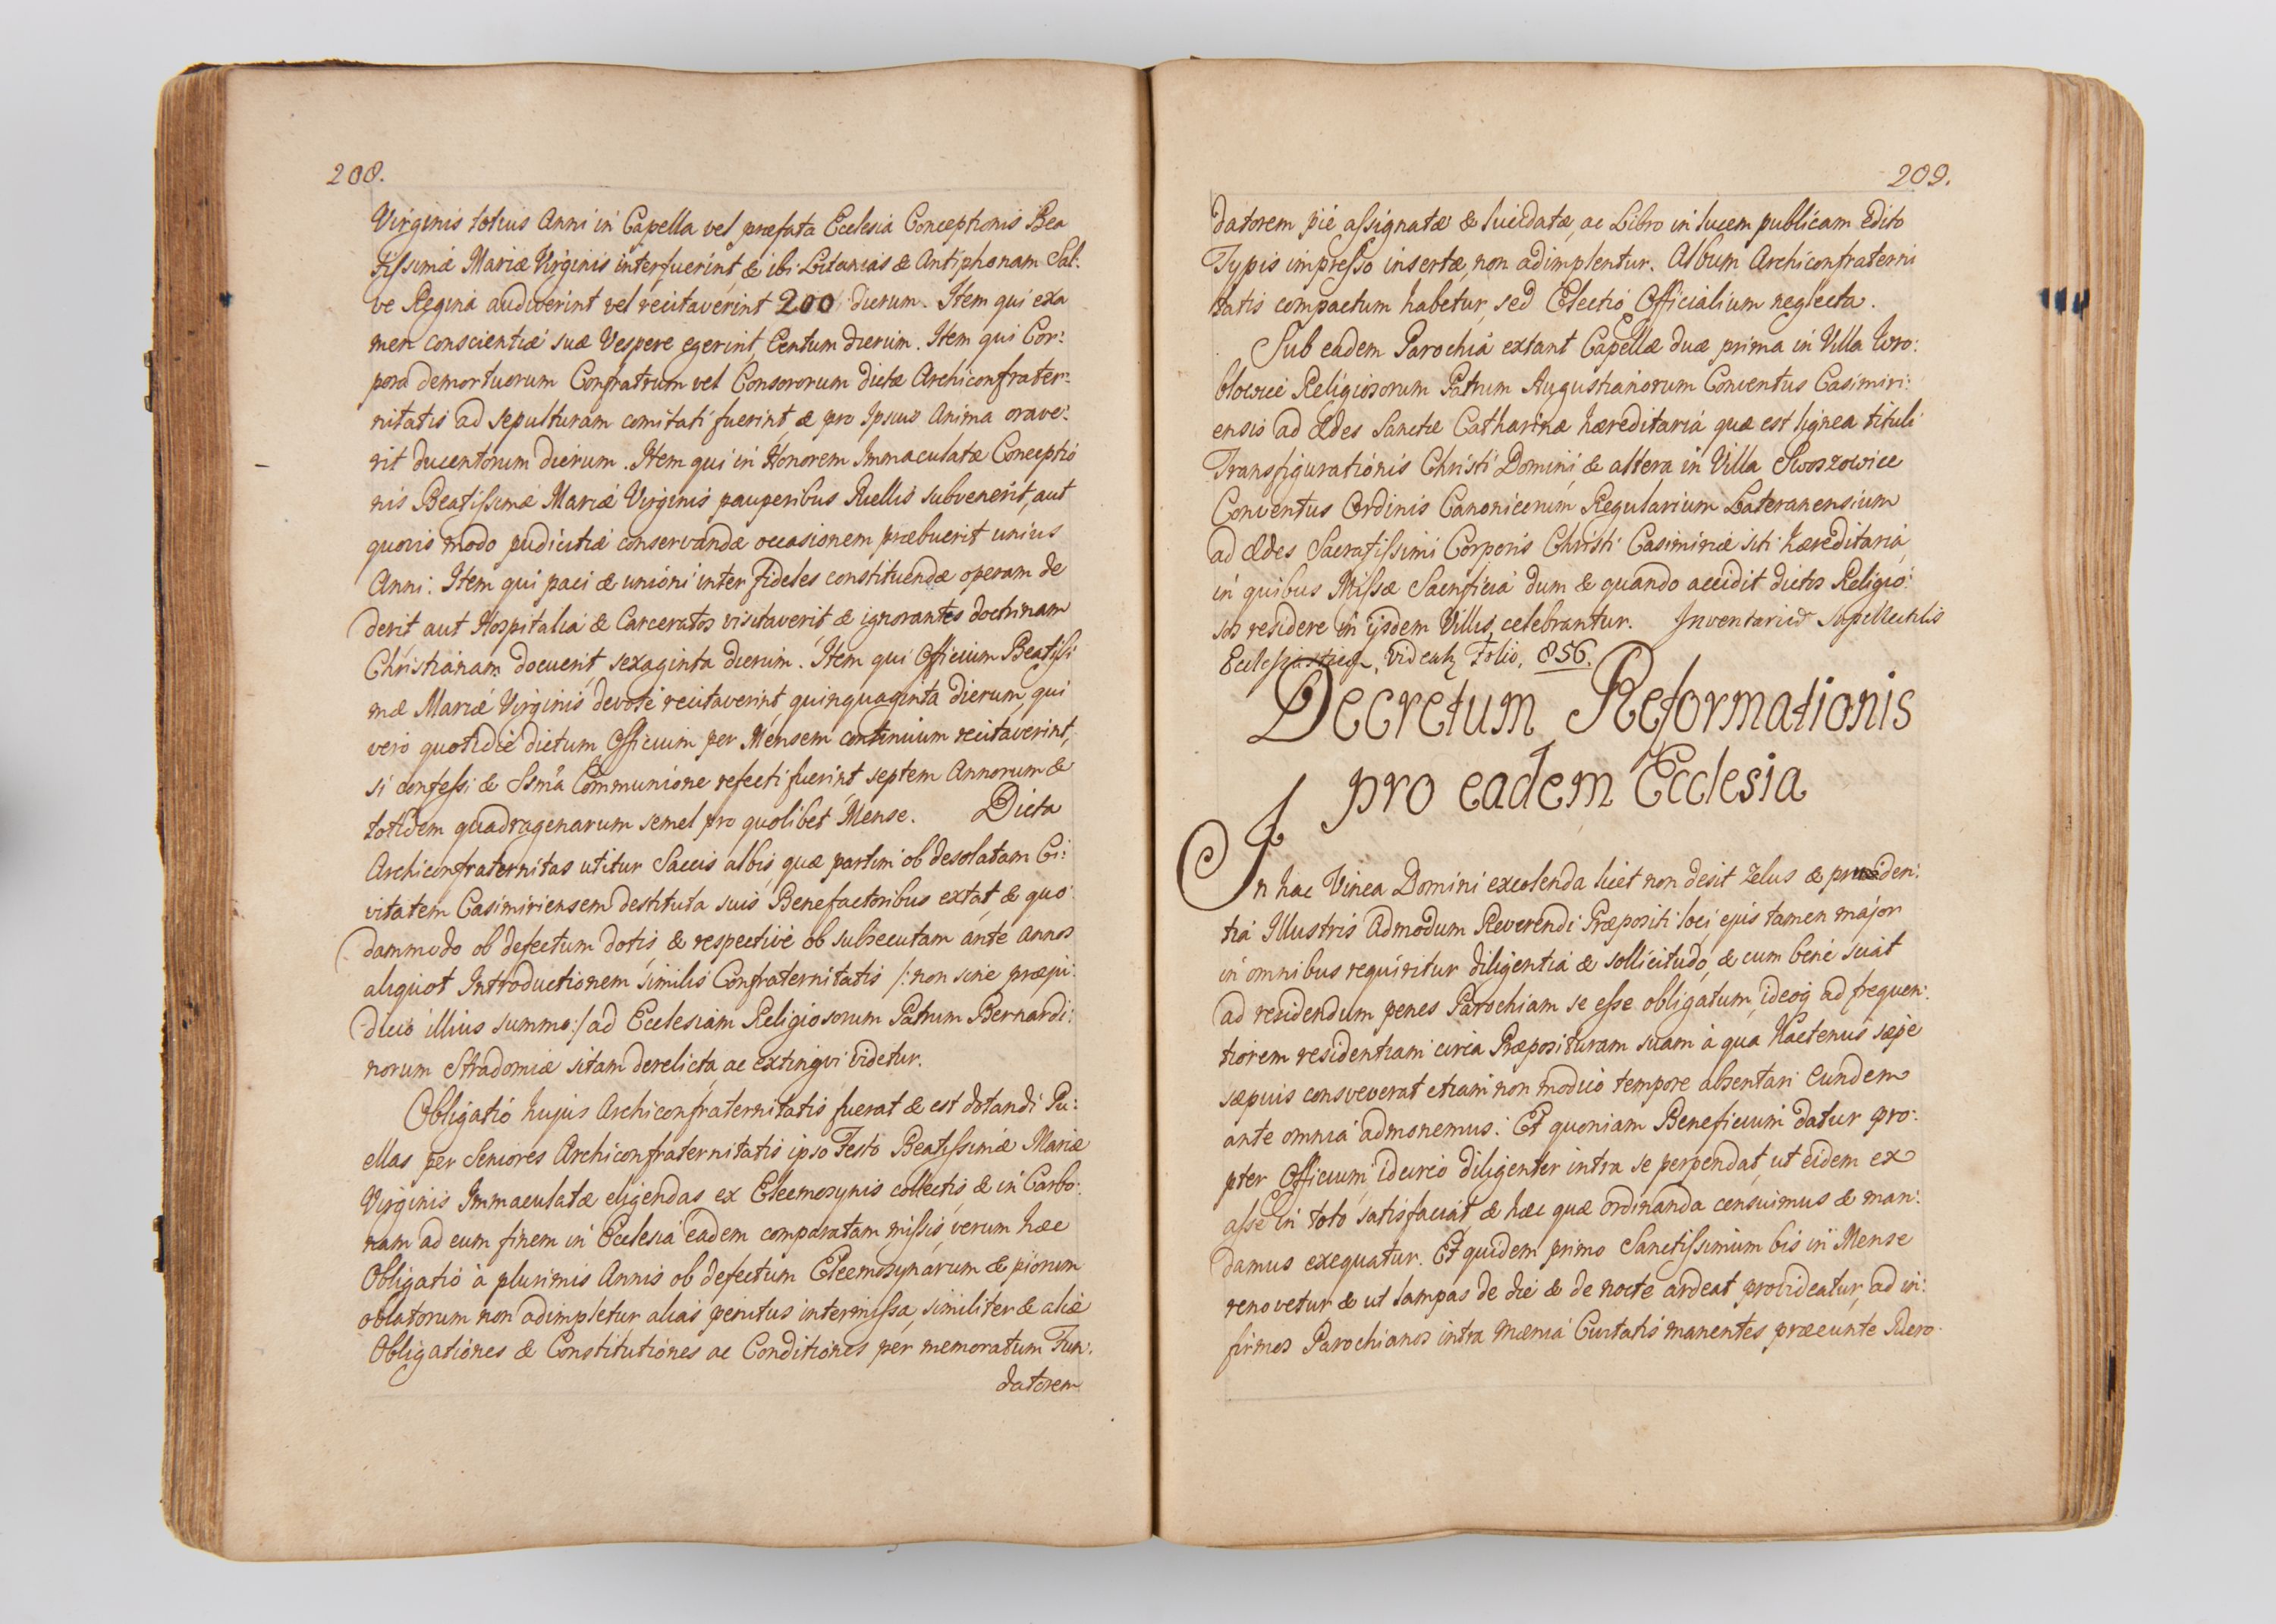 208.
Virginis totius Anni in Capella vel præfata Ecclesia Conceptionis Bea
tissimæ Mariæ Virginis interfuerint, & ibi Litanias & Antiphonam Sal:
ve Regina audiverint vel recitaverint 200 dierum. Item qui exa
men conscientiæ suæ Vespere egerint, Centum dierum. Item qui Cor:
pora demortuorum Confratrum vel Consororum dictæ Archiconfrater:
nitatis ad sepulturam comitati fuerint, & pro Ipsius Anima orave:
rit ducentorum dierum. Item qui in Honorem Immaculatæ Conceptio
nis Beatissimæ Mariæ Virginis pauperibus Puellis subvenerit, aut
quovis modo pudicitiæ conservandæ occasionem præbuerit unius
Anni: Item qui paci & unioni inter fideles constituendæ operam de
derit aut Hospitalia & Carceratos visitaverit & ignorantes doctrinam
Christianam docuerit, sexaginta dierum. Item qui Officium Beatissi
mæ Mariæ Virginis devote recitaverint quinquaginta dierum, qui
vero quotidie dictum Officium per Mensem continuum recitaverint,
si confessi & Ssma Communione refecti fuerint septem Annorum &
totidem quadragenarum semel pro quolibet Mense. Dicta
Archiconfraternitas utitur Saccis albis, quæ partim ob desolatam Ci:
vitatem Casimiriensem destituta suis Benefactoribus extat, & quo
dammodo ob defectum dotis & respective ob subsecutam ante annos
aliquot Introductionem similis Confraternitatis /: non sine præju:
dicio illius summo :/ ad Ecclesiam Religiosorum Patrum Bernardi:
norum Stradomiæ sitam derelicta, ac extingvi videtur.
Obligatio hujus Archiconfraternitatis fuerat & est dotandi Pu:
ellas per Seniores Archiconfraternitatis ipso Festo Beatissimæ Mariæ
Virginis Immaculatæ eligendas ex Eleemosynis collectis & in Carbo:
nam ad eum finem in Ecclesia eadem comparatam missis, verum hæc
Obligatio à plurimis Annis ob defectum Eleemosynarum & piorum
oblatorum non adimpletur alias penitus intermissa, similiter & aliæ
Obligationes & Constitutiones ac Conditiones per memoratum Fun:
datorem
209.
datorem pie assignatæ & lucidatæ, ac Libro in lucem publicam edito
Typis impresso insertæ, non adimplentur. Album Archiconfraterni
tatis compactum habetur, sed Electio Officialium neglecta.
Sub eadem Parochia extant Capellæ duæ prima in Villa Wro:
blowice Religiosorum Patrum Augustianorum Conventus Casimiri:
ensis ad Ædes Sanctæ Catharinæ hæreditaria quæ est lignea tituli
Transfigurationis Christi Domini, & altera in Villa Swoszowice
Conventus Ordinis Canonicorum Regularium Lateranensium
ad Ædes Sacratissimi Corporis Christi Casimiriæ siti hæreditaria,
in quibus Missæ Sacrificia dum & quando accidit dictos Religio:
sos residere in ijsdem Villis, celebrantur. Inventariū Supellectilis
Ecclesiasticæ, videatr Folio, 856.
Decretum Reformationis
pro eadem Ecclesia
In hac Vinea Domini excolenda licet non desit Zelus & pruden:
tia Illustris Admodum Reverendi Præpositi loci, ejus tamen major
in omnibus requiritur diligentia & sollicitudo, & cum bene sciat
ad residendum penes Parochiam se esse obligatum, ideoq ad frequen:
tiorem residentiam circa Præposituram suam à qua Hactenus sæpe
sæpius consveverat etiam non modico tempore absentari Eundem
ante omnia admonemus: Et quoniam Beneficium datur pro:
pter Officium, idcirco diligenter intra se perpendat, ut eidem ex
asse in toto satisfaciat, & hæc quæ ordinanda censuimus & man:
damus exequatur. Et quidem primo Sanctissimum bis in Mense
renovetur & ut lampas de die & de nocte ardeat provideatur, ad in:
firmos Parochianos intra mænia Civitatis manentes præeunte Puero